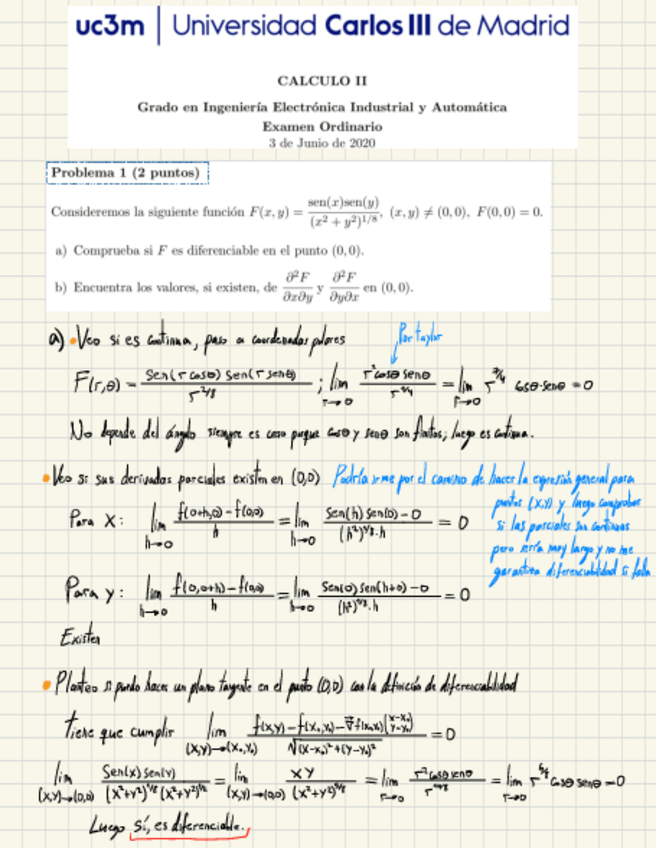 uc3m | Universidad Carlos III de Madrid
CALCULO II
Grado en Ingeniería Electrónica Industrial y Automática
Examen Ordinario
3 de Junio de 2020
Problema 1 (2 puntos)
Consideremos la siguiente función F(x, y) = sen(x)sen(y) / (x² + y²)^{1/8}, (x, y) ≠ (0, 0), F(0, 0) = 0.
a) Comprueba si F es diferenciable en el punto (0, 0).
b) Encuentra los valores, si existen, de ∂²F/∂x∂y y ∂²F/∂y∂x en (0, 0).
a) • Veo si es continua, paso a coordenadas polares
Por taylor
F(r,θ) = sen(r cosθ) sen(r senθ) / r^{2/8} ; lim r→0 r² cosθ senθ / r^{1/4} = lim r→0 r^{7/4} cosθ·senθ = 0
No depende del ángulo siempre es cero porque cosθ y senθ son finitos; luego es continua.
• Veo si sus derivadas parciales existen en (0,0)
Podría irme por el camino de hacer la expresión general para
puntos (x,y) y luego comprobar
si las parciales son continuas
pero sería muy largo y no me
garantiza diferenciabilidad si falla
Para X: lim h→0 f(0+h,0) - f(0,0) / h = lim h→0 Sen(h) sen(0) - 0 / (h²)^{1/8}·h = 0
Para y: lim h→0 f(0,0+h) - f(0,0) / h = lim h→0 Sen(0) sen(h+0) - 0 / (h²)^{1/8}·h = 0
Existen
• Planteo si puedo hacer un plano tangente en el punto (0,0) con la definición de diferenciabilidad
Tiene que cumplir lim (x,y)→(x₀,y₀) f(x,y) - f(x₀,y₀) - ∇f(x₀,y₀)(x-x₀ y-y₀) / √(x-x₀)²+(y-y₀)² = 0
lim (x,y)→(0,0) Sen(x) sen(y) / (x²+y²)^{1/8} (x²+y²)^{1/2} = lim (x,y)→(0,0) xy / (x²+y²)^{5/8} = lim r→0 r² cosθ senθ / = lim r→0 cosθ senθ = 0
Luego sí, es diferenciable.